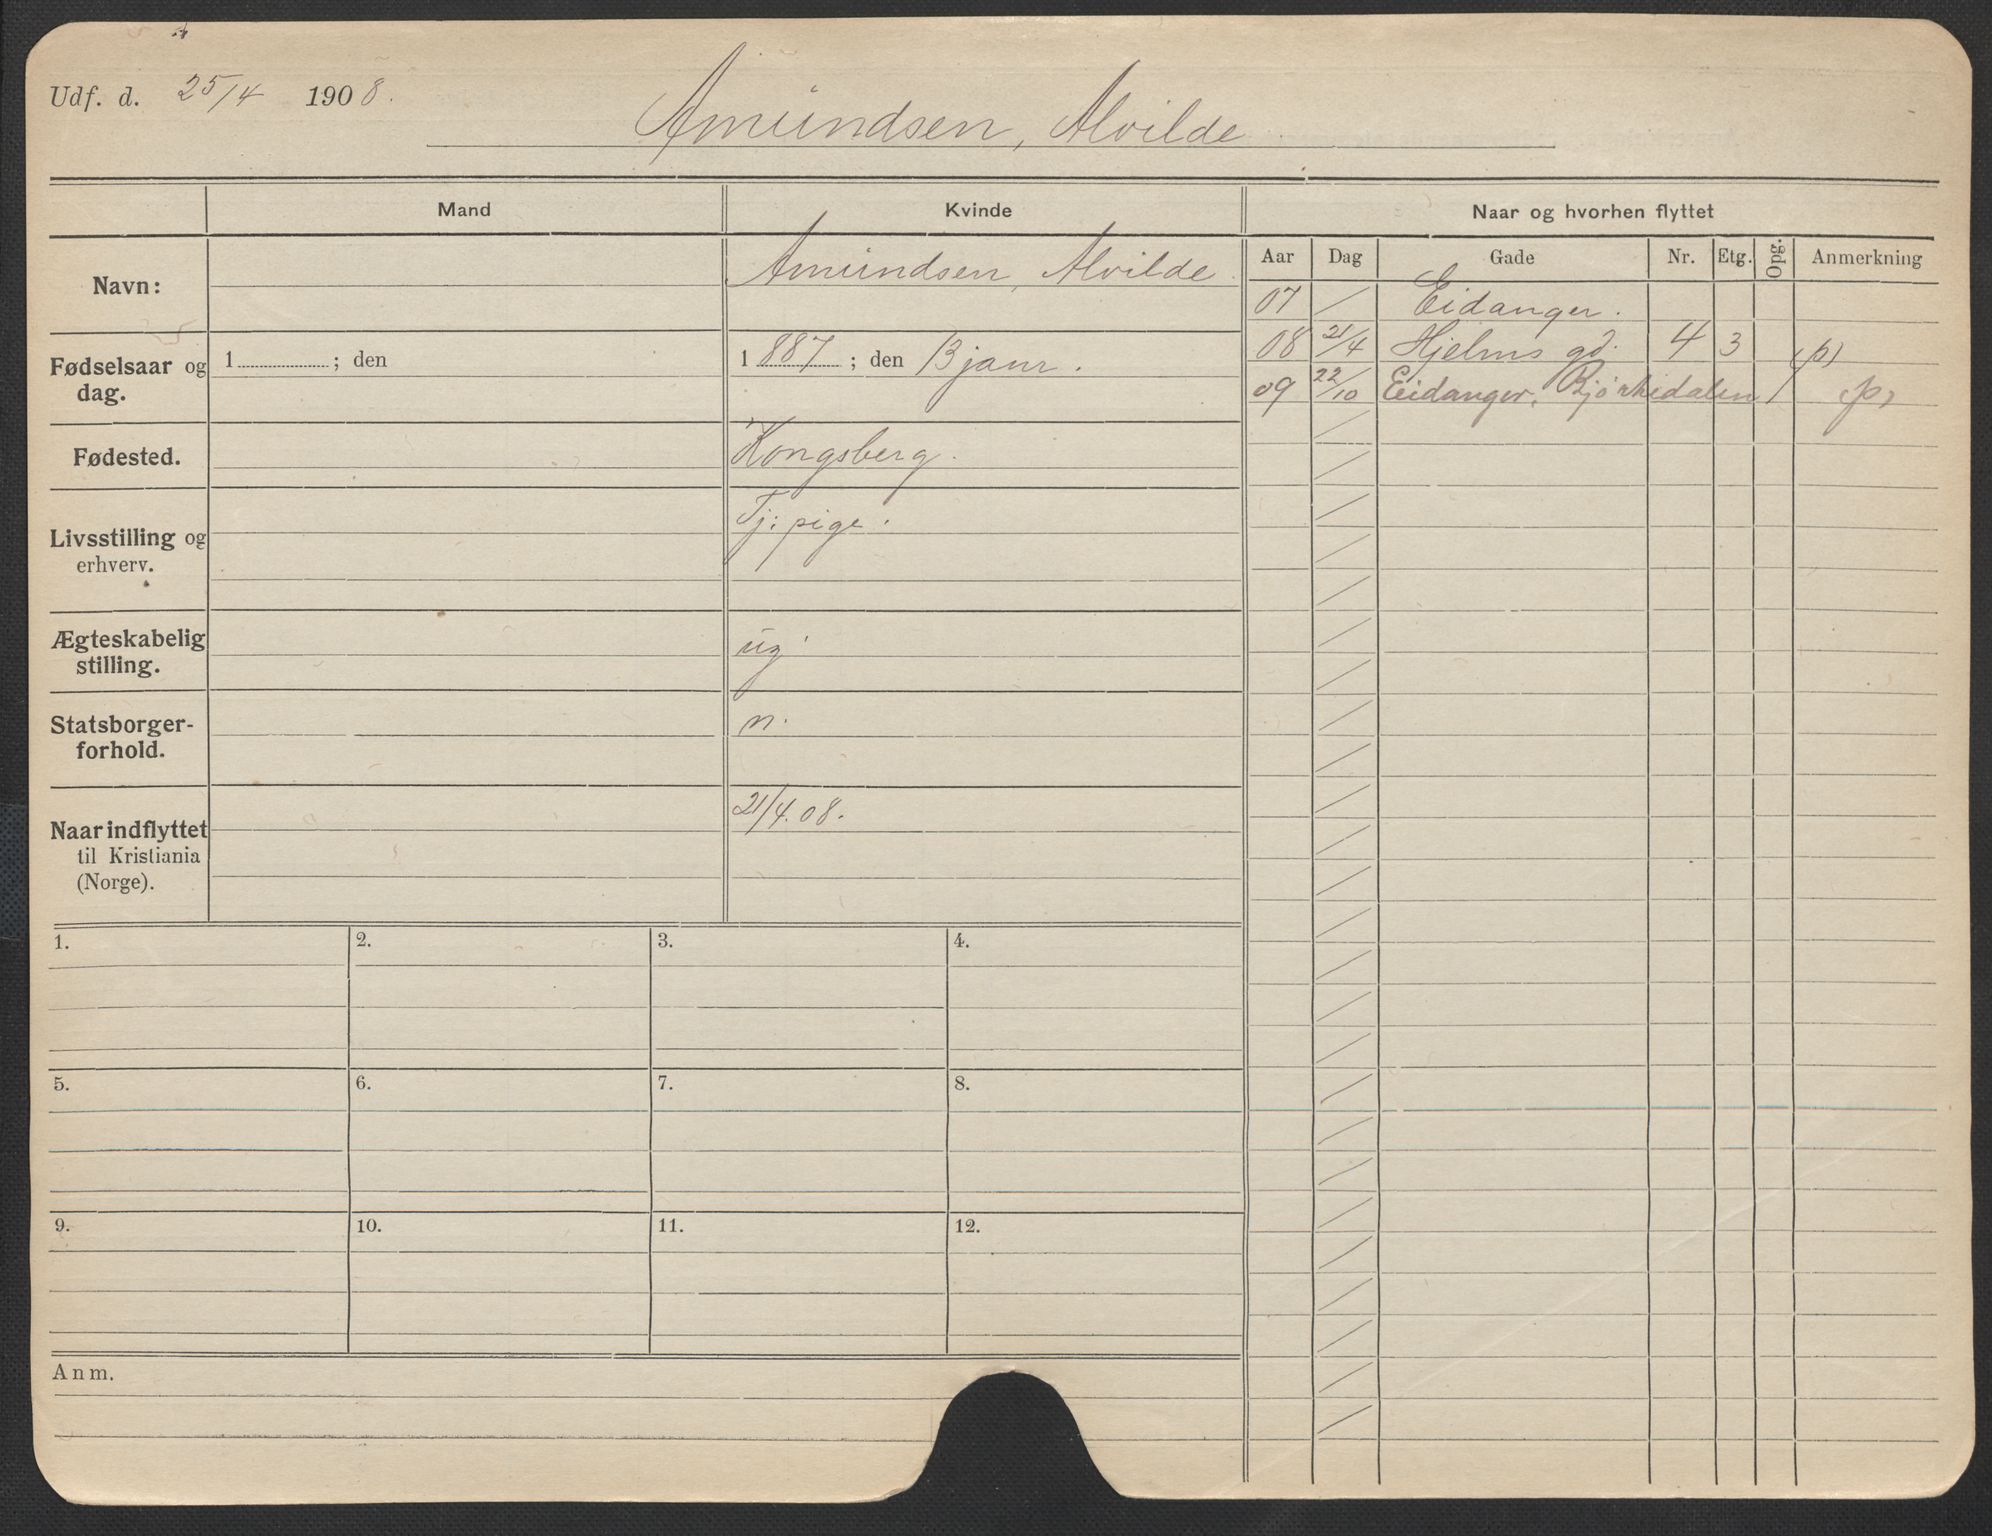 Udf. d. 25/4 1908.
Amundsen, Alvilde
Mand
Kvinde
Naar og hvorhen flyttet
Navn:
Amundsen, Alvilde.
Aar Dag Gade Nr. Etg. Opg. Anmerkning
07 / Eidanger.
08 21/4 Hjelms gd. 4 3 (p)
09 22/10 Eidanger, Bjørkedalen (p)
Fødselsaar og dag.
1 ; den
1887 ; den 13 janr.
Fødested.
Kongsberg.
Livsstilling og erhverv.
Tj: pige.
Ægteskabelig stilling.
ug
Statsborger-
forhold.
n.
Naar indflyttet
til Kristiania
(Norge).
21/4.08.
1. 2. 3. 4.
5. 6. 7. 8.
9. 10. 11. 12.
Anm.